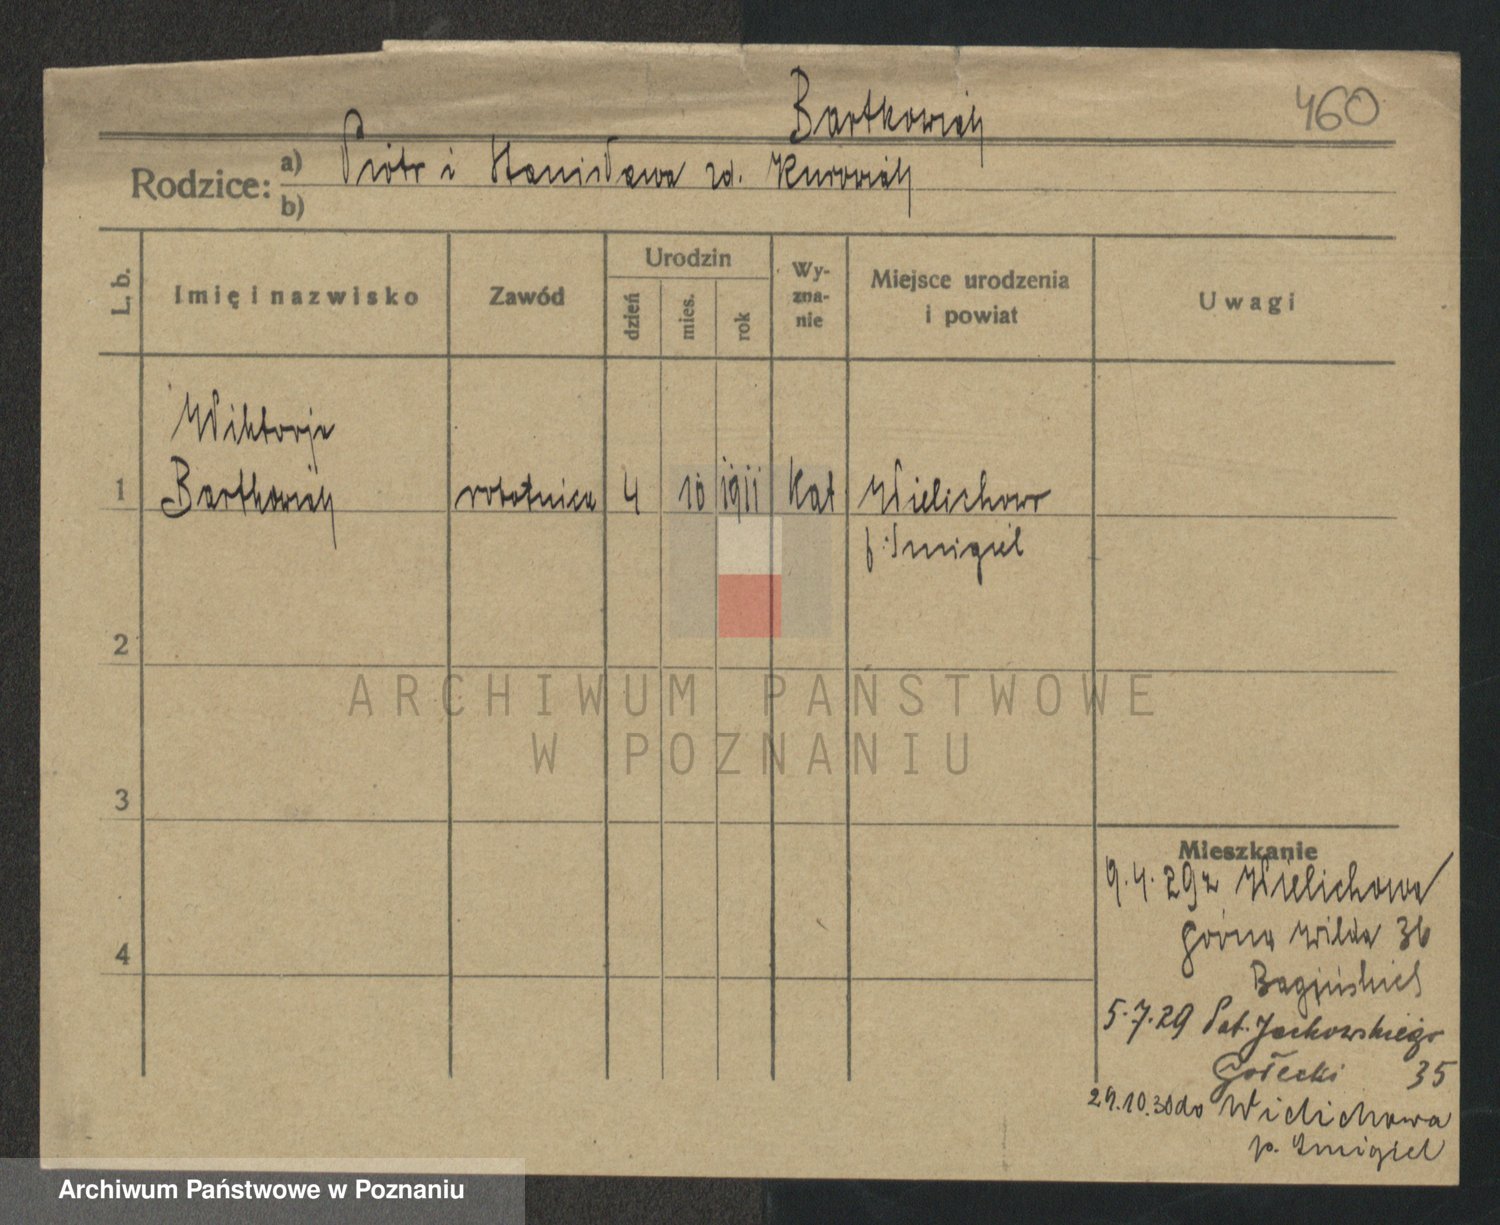 Bartkowiak
460
Rodzice:
a) Piotr i Stanisława zd. Kurowiak
b)
L. b.
Imię i nazwisko
Zawód
Urodzin
dzień
mies.
rok
Wy-
zna-
nie
Miejsce urodzenia
i powiat
Uwagi
Wiktorja
1 Bartkowiak robotnica 4 10 1911 kat Wielichowo
p. Śmigiel
2
3
4
Mieszkanie
9.4.29 z Wielichowa
Górna Wilda 36
5.7.29 Pat. Jackowskiego
Gołecki 35
29.10.30 do Wielichowa
p. Śmigiel
ARCHIWUM PAŃSTWOWE
W POZNANIU
Archiwum Państwowe w Poznaniu